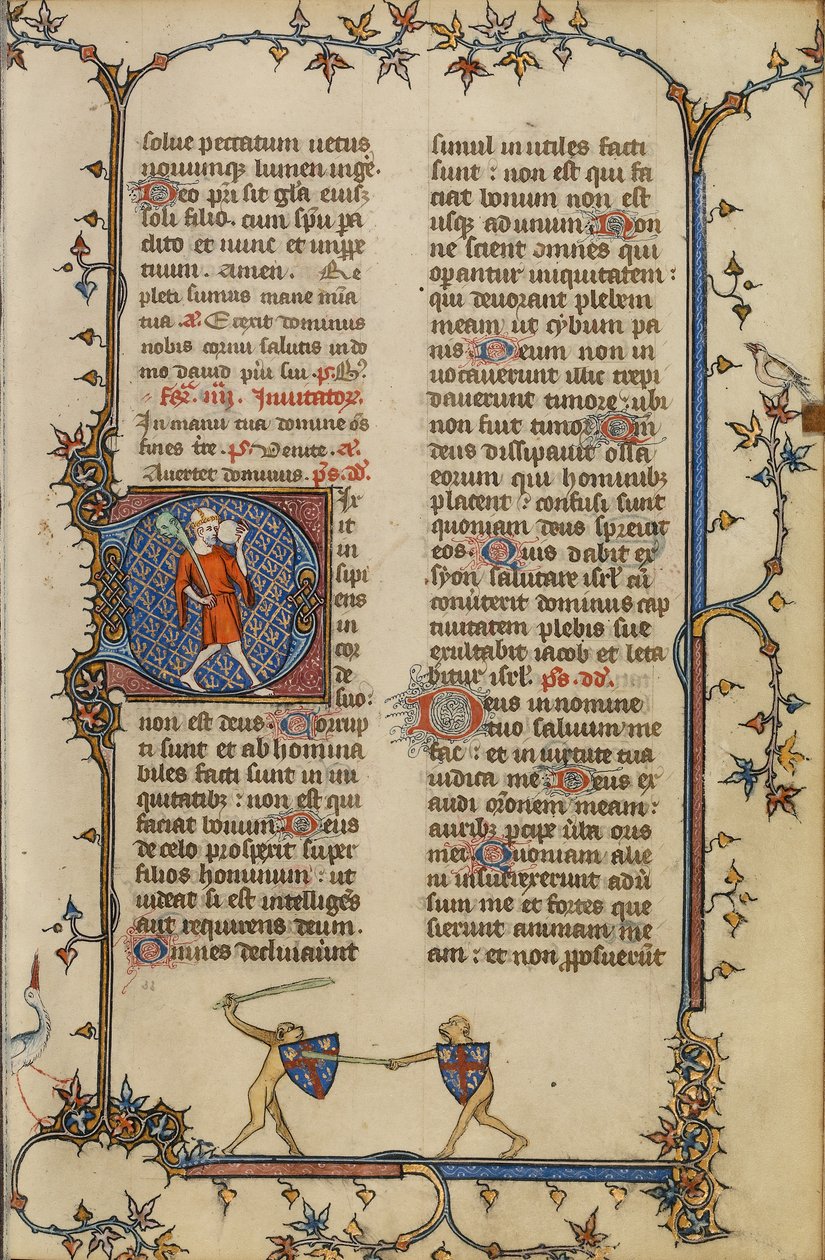 solue peccatum uetus
nouumqꝫ lumen inge.
Deo pri sit gła eiusꝫ
soli filio. cum spu pa
clito et nunc et impꝑe
tuum. Amen. Re
pleti sumus mane mia
tua .a. Erexit dominus
nobis cornu salutis in do
mo dauid pu͛i sui .p. B.
fer. iiij. Inuitator.
In manu tua domine os
fines tre. ps. Venite. a.
Auertet dominus. ps. dd.
Dix
it
in
sipi
ens
in
cor
de
suo:
non est deus. Corrup
ti sunt et abhomina
biles facti sunt in ini
quitatibꝫ : non est qui
faciat bonum. Deus
de celo prospexit super
filios hominum : ut
uideat si est intelliges
aut requirens deum.
Omnes declinauet
simul inutiles facti
sunt : non est qui fa
ciat bonum non est
usqꝫ ad unum. Non
ne scient omnes qui
opantur iniquitatem :
qui deuorant plebem
meam ut cybum pa
nis. Deum non in
uocauerunt illic trepi
dauerunt timore : ubi
non fuit timor. Qm
deus dissipauit ossa
eorum qui hominibꝫ
placent : confusi sunt
quoniam deus spreuit
eos. Quis dabit ex
syon salutare isrl cu
conuterit dominus cap
tiuitatem plebis sue
exultabit iacob et leta
bitur isrl. ps. dd.
Deus in nomine
tuo saluum me
fac : et in uirtute tua
iudica me. Deus ex
audi oronem meam :
auribꝫ pcipe uba oris
mei. Quoniam alie
ni insurrexerunt adu
sum me et fortes que
sierunt animam me
am : et non pposuerut